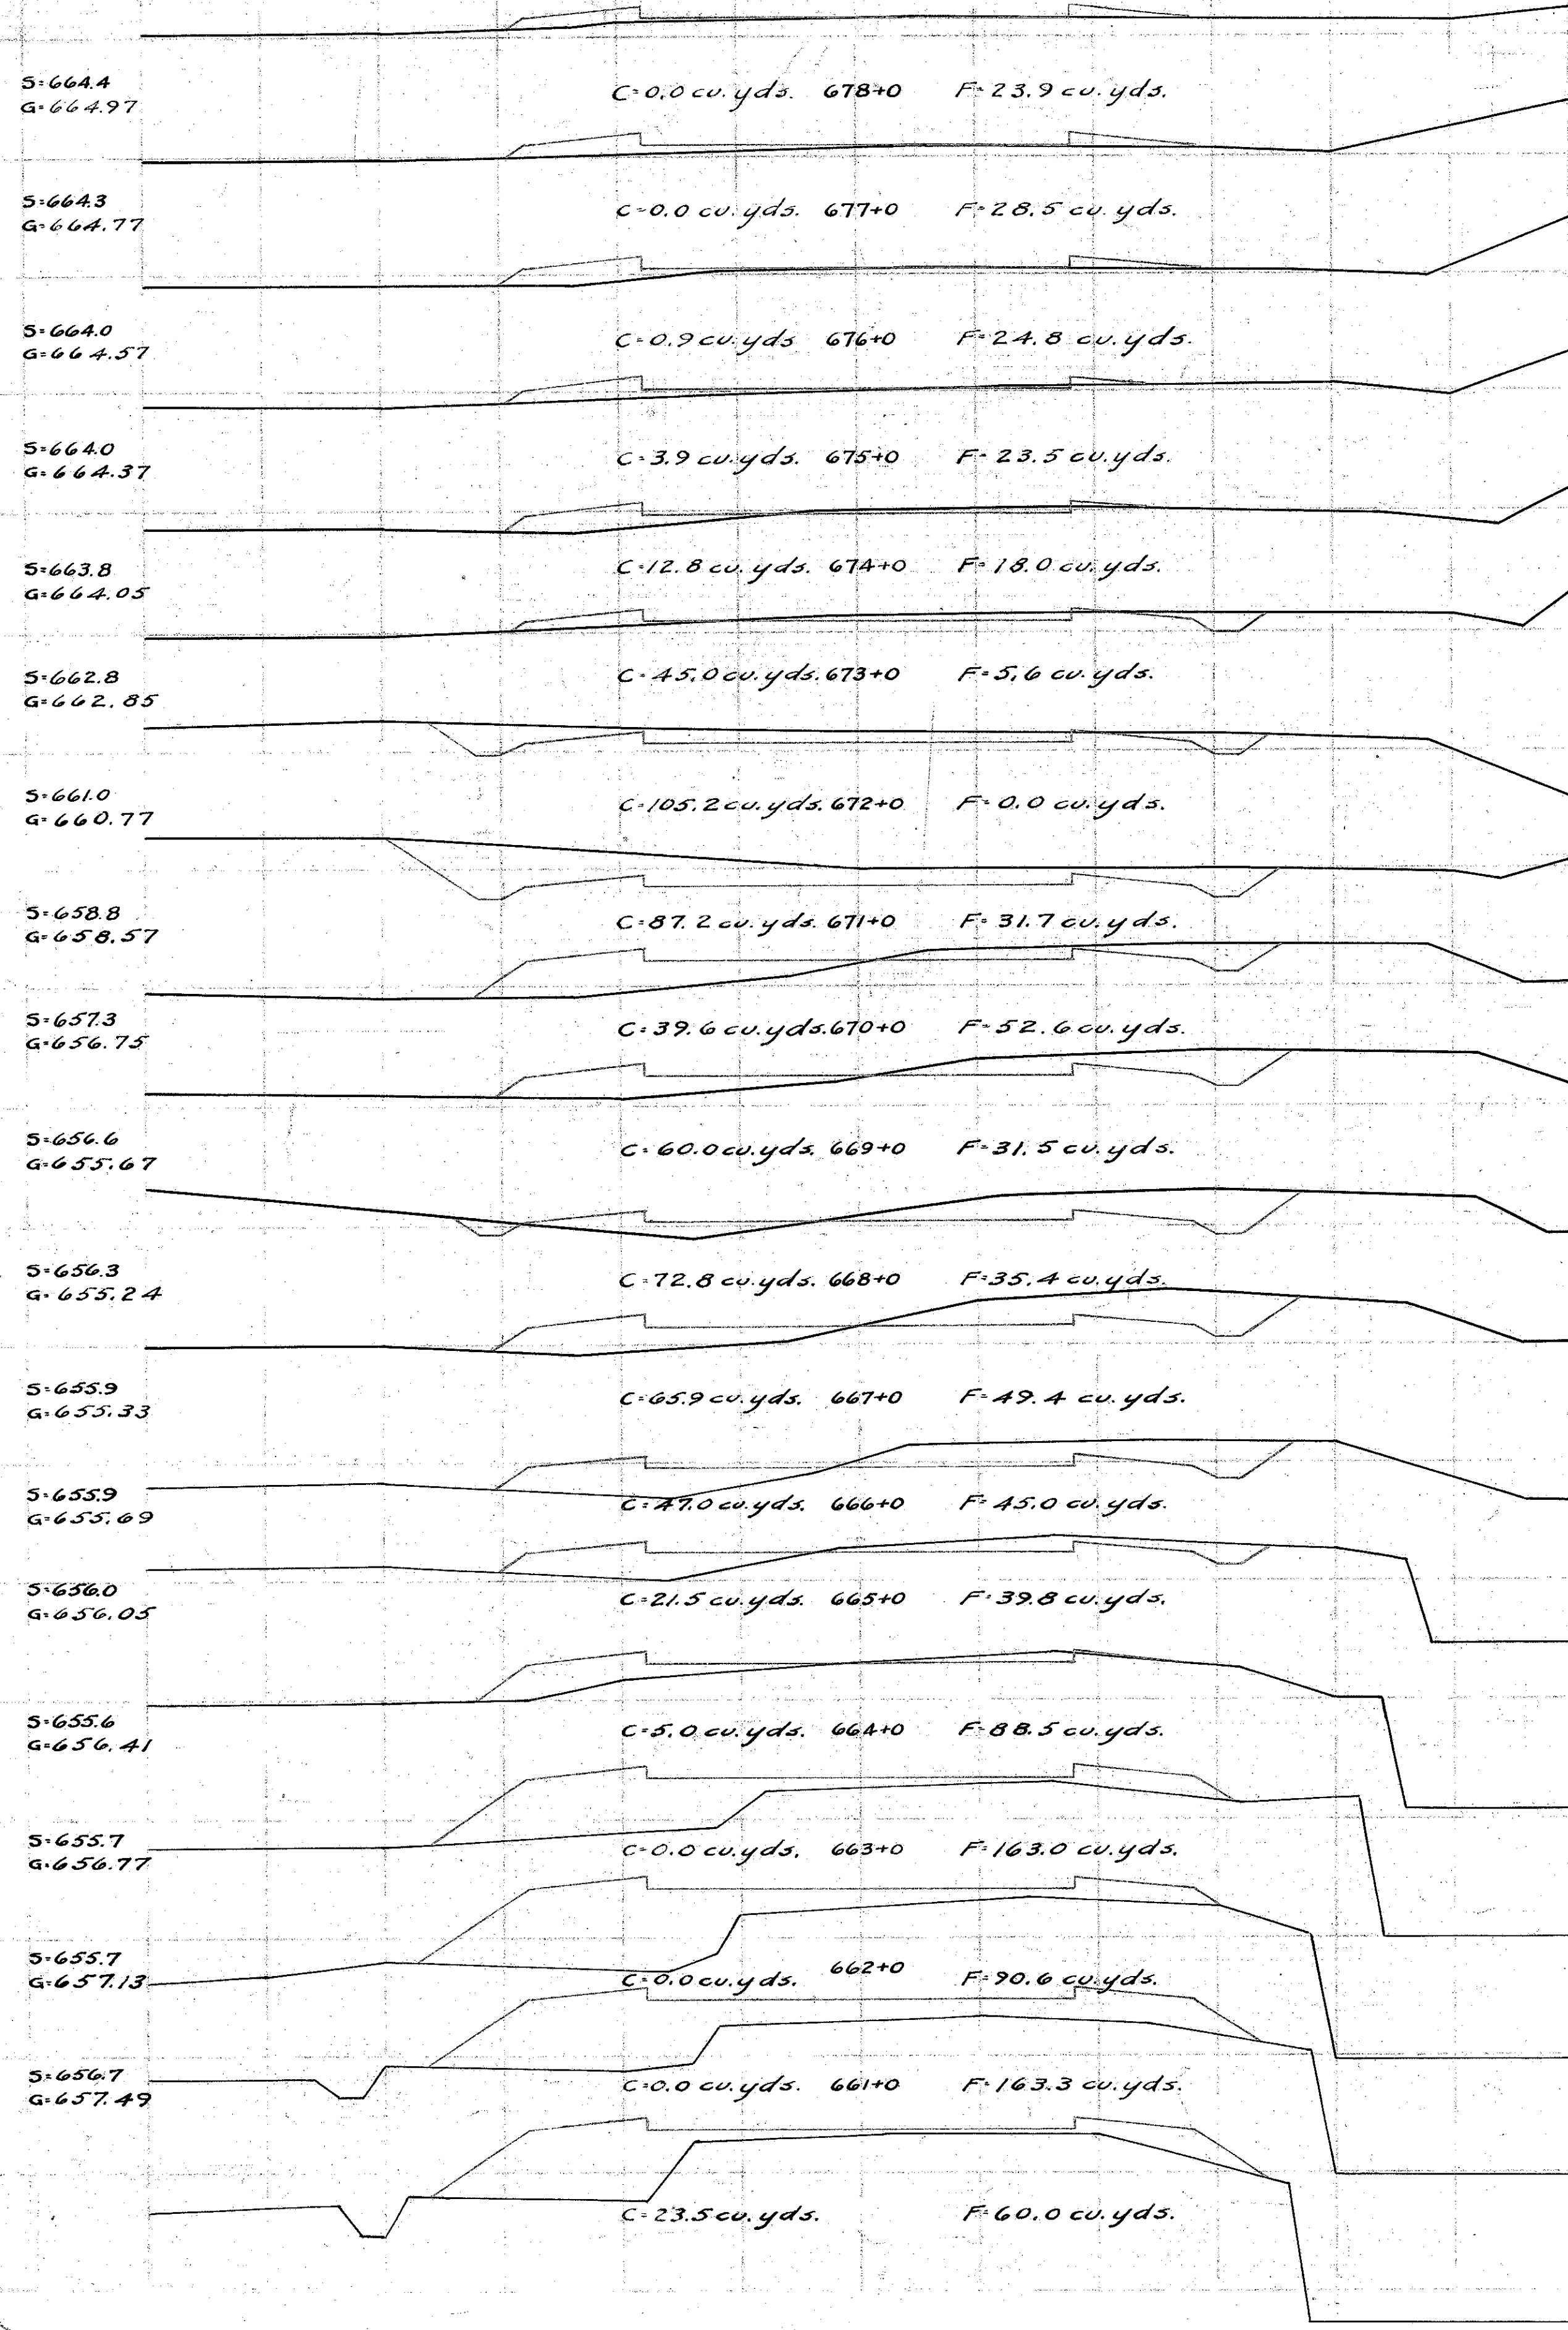 S=664.4
G=664.97
C=0.0 cu. yds. 678+0 F=23.9 cu. yds.
S=664.3
G=664.77
C=0.0 cu. yds. 677+0 F=28.5 cu. yds.
S=664.0
G=664.57
C=0.9 cu. yds. 676+0 F=24.8 cu. yds.
S=664.0
G=664.37
C=3.9 cu. yds. 675+0 F=23.5 cu. yds.
S=663.8
G=664.05
C=12.8 cu. yds. 674+0 F=18.0 cu. yds.
S=662.8
G=662.85
C=45.0 cu. yds. 673+0 F=5.6 cu. yds.
S=661.0
G=660.77
C=105.2 cu. yds. 672+0 F=0.0 cu. yds.
S=658.8
G=658.57
C=87.2 cu. yds. 671+0 F=31.7 cu. yds.
S=657.3
G=656.75
C=39.6 cu. yds. 670+0 F=52.6 cu. yds.
S=656.6
G=655.67
C=60.0 cu. yds. 669+0 F=31.5 cu. yds.
S=656.3
G=655.24
C=72.8 cu. yds. 668+0 F=35.4 cu. yds.
S=655.9
G=655.33
C=65.9 cu. yds. 667+0 F=49.4 cu. yds.
S=655.9
G=655.69
C=47.0 cu. yds. 666+0 F=45.0 cu. yds.
S=656.0
G=656.05
C=21.5 cu. yds. 665+0 F=39.8 cu. yds.
S=655.6
G=656.41
C=5.0 cu. yds. 664+0 F=88.5 cu. yds.
S=655.7
G=656.77
C=0.0 cu. yds. 663+0 F=163.0 cu. yds.
S=655.7
G=657.13
C=0.0 cu. yds. 662+0 F=90.6 cu. yds.
S=656.7
G=657.49
C=0.0 cu. yds. 661+0 F=163.3 cu. yds.
C=23.5 cu. yds. F=60.0 cu. yds.